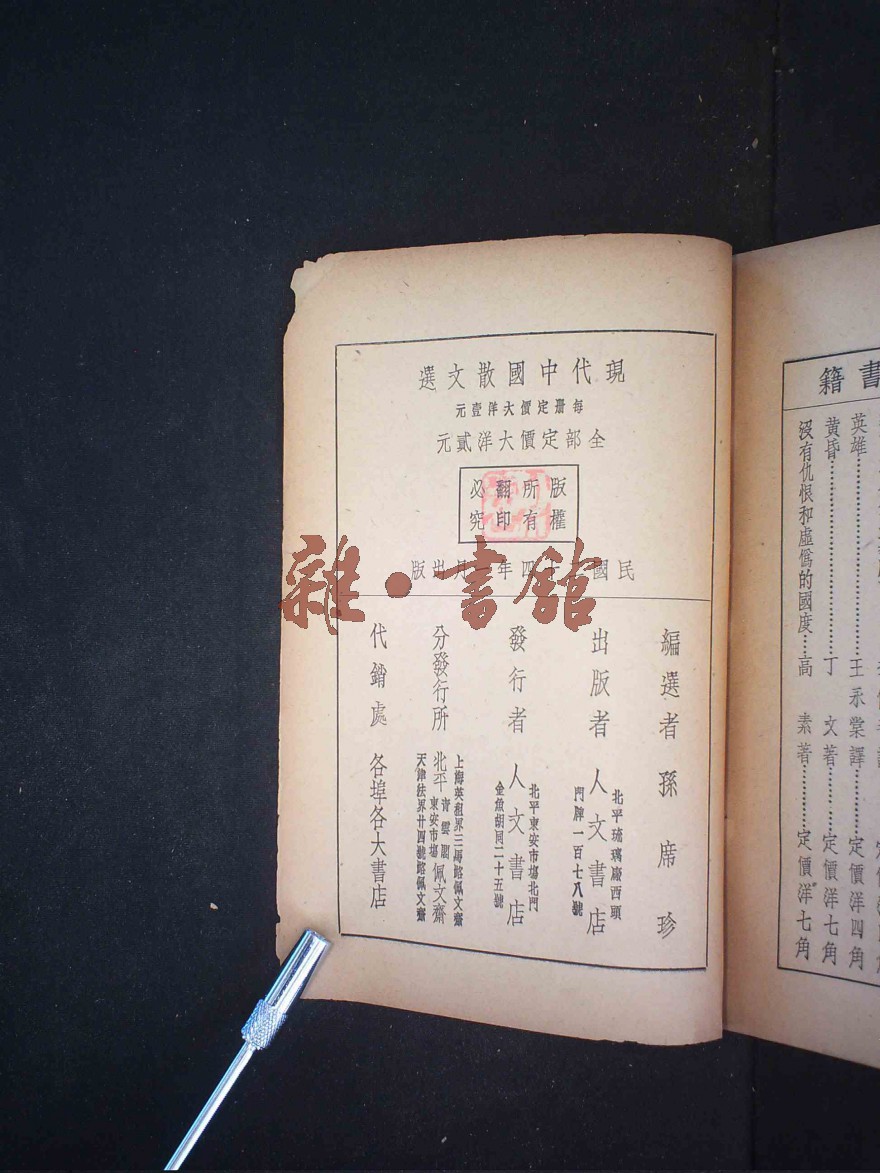 現代中國散文選
每册定價大洋壹元
全部定價大洋貳元
版權所有翻印必究
民國 四年一月出版
雜·書館
編選者 孫席珍
出版者 人文書店
北平琉璃廠西頭
門牌一百七八號
發行者 人文書店
北平東安市場北門
金魚胡同二十五號
分發行所
上海英租界三馬路佩文齋
北平 青雲閣 東安市場 佩文齋
天津法界廿四號路佩文齋
代銷處 各埠各大書店
書籍
英雄 王永棠譯 定價洋四角
黃昏 丁文著 定價洋七角
沒有仇恨和虛僞的國度 高素著 定價洋七角